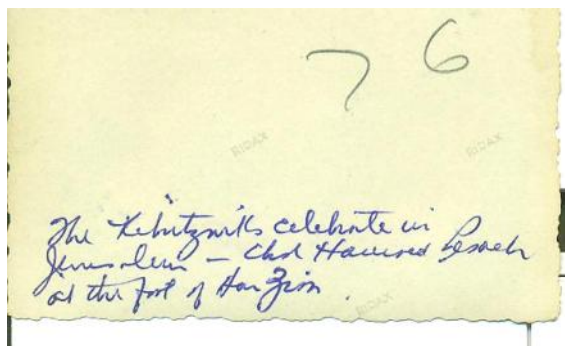 76
RIDAX
RIDAX
The Kibutzniks celebrate in
Jerusalem — Chol Hamoed Pesach
at the foot of Har Zion.
RIDAX